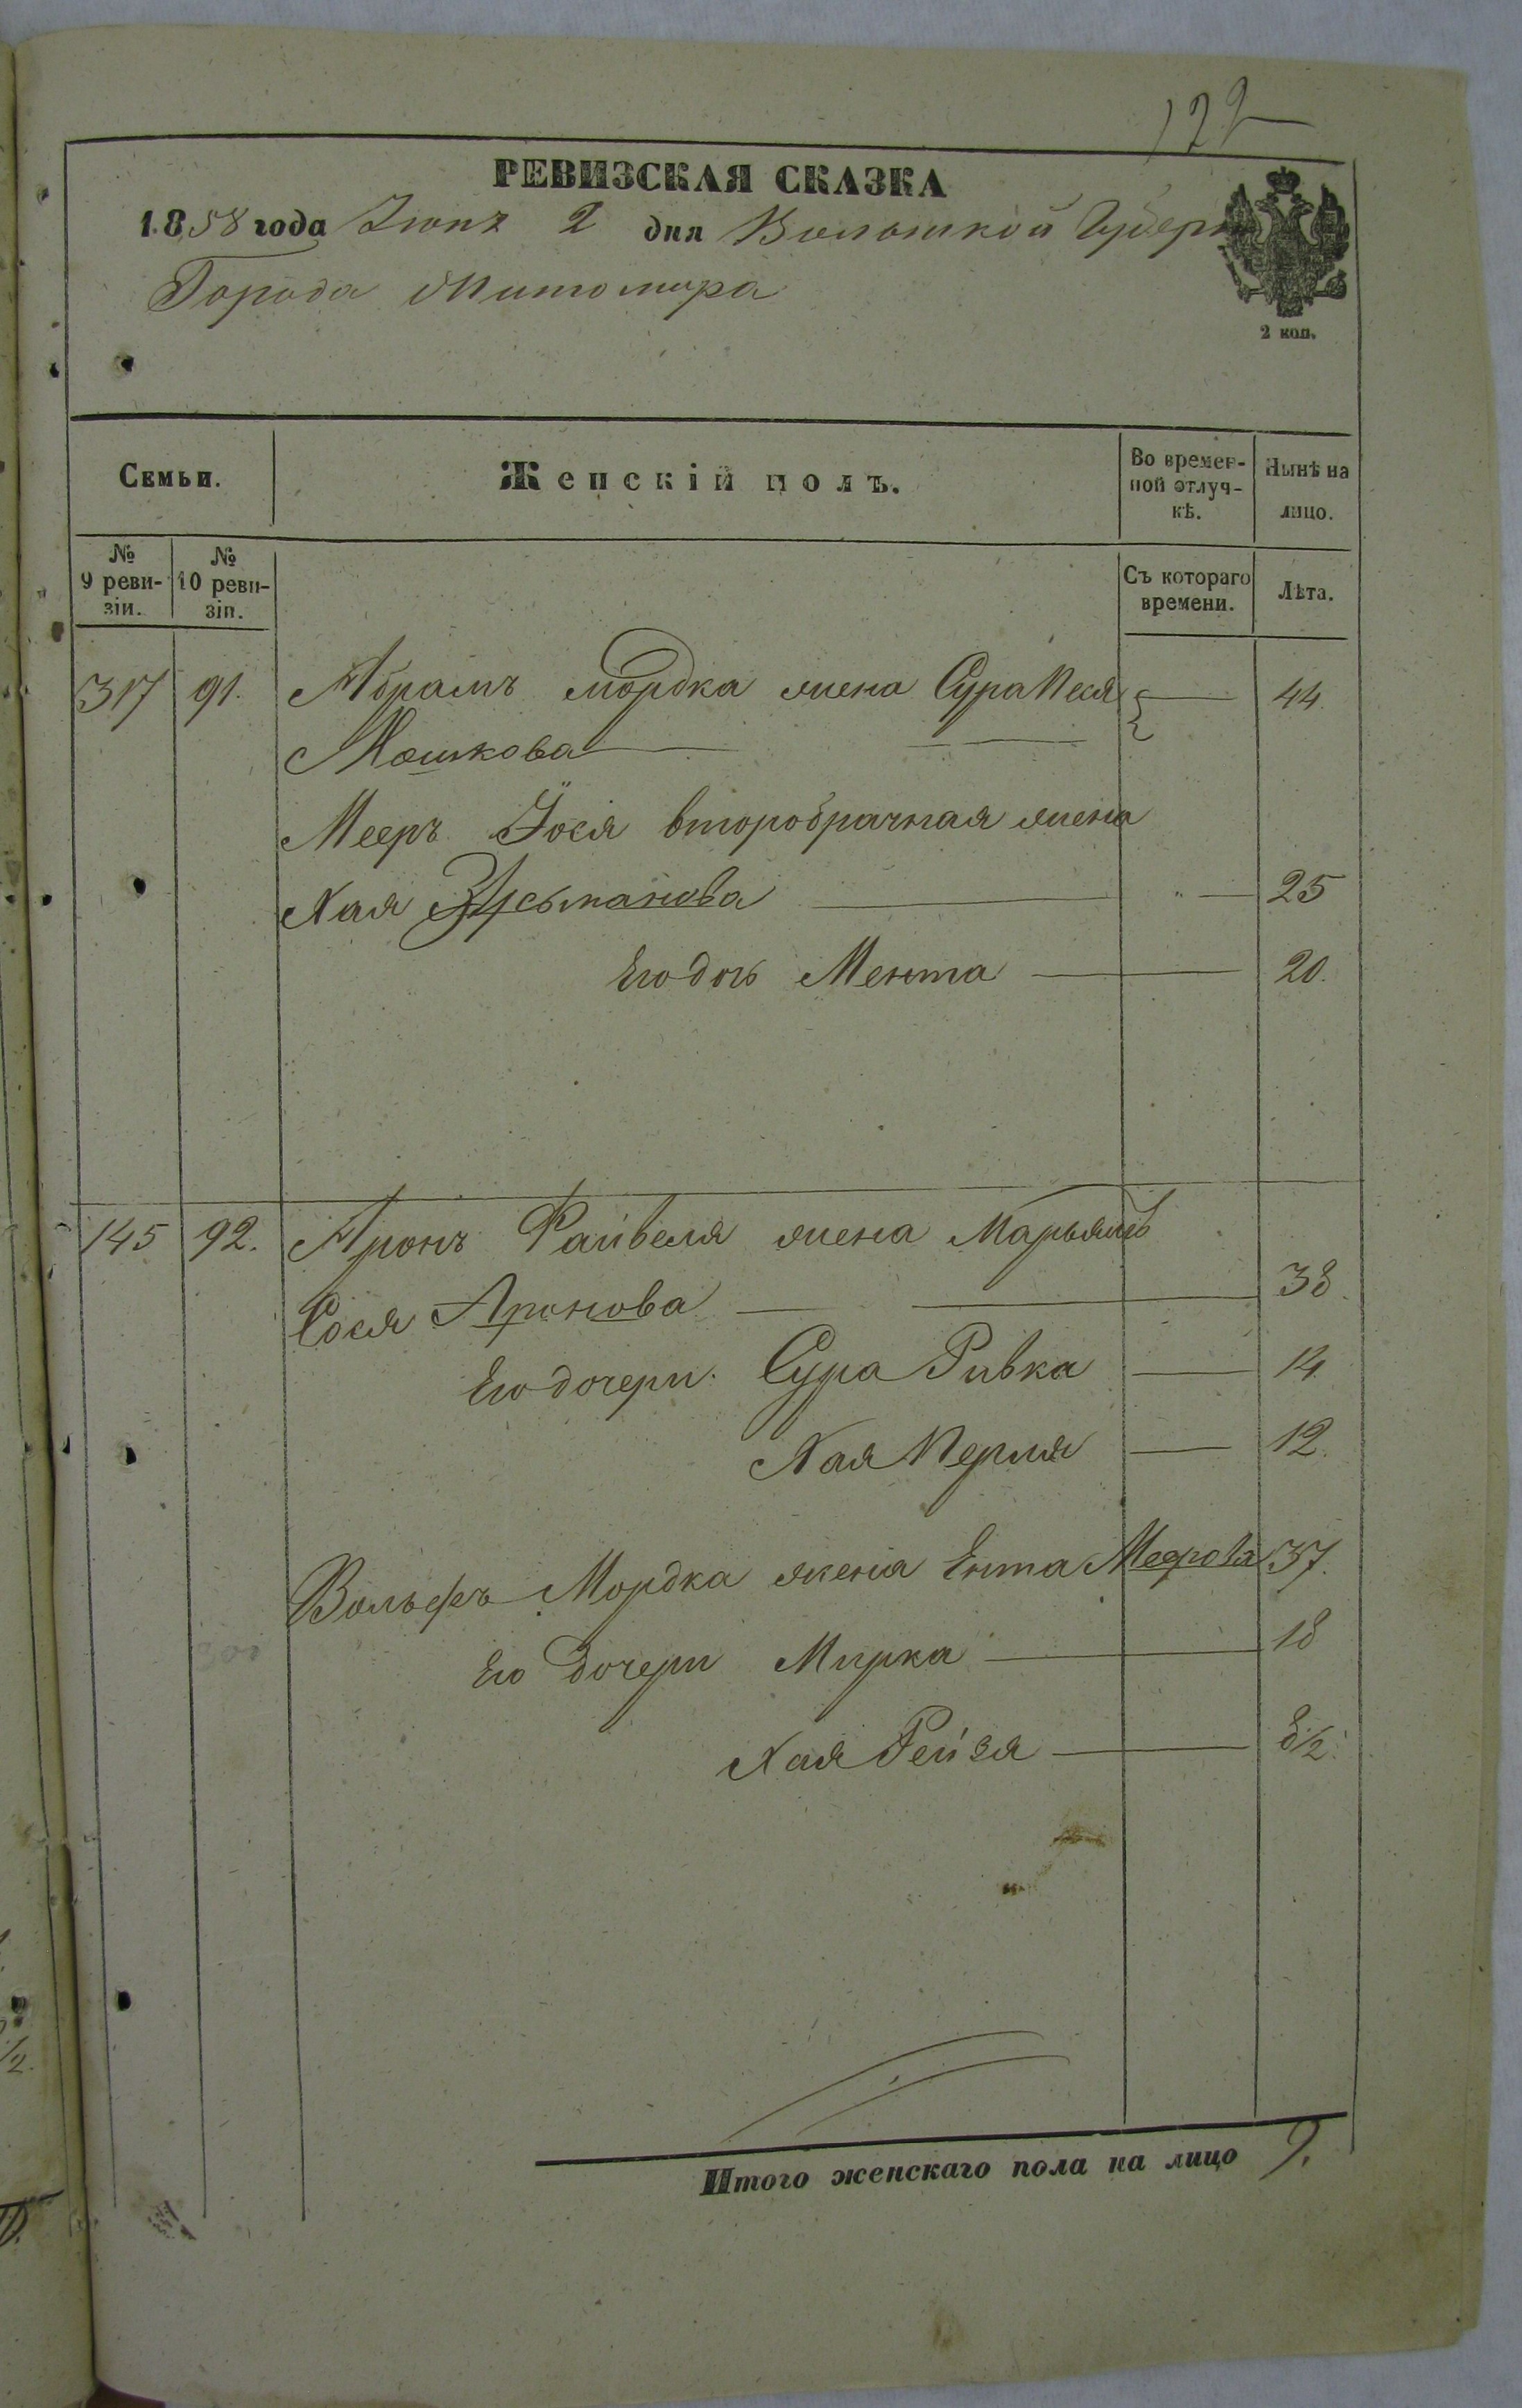 122
РЕВИЗСКАЯ СКАЗКА
1858 года Iюня 2 дня Волынской Губерн
Города Житомира
2 коп.
Семьи.
Женскiй полъ.
Во времен-
ной отлуч-
кѣ.
Нынѣ на
лицо.
№
9 реви-
зiи.
№
10 реви-
зiи.
Съ котораго
времени.
Лѣта.
317 91. Абрамъ Мордка жена Сура Песя 44.
Мошкова
Мееръ Іося второбрачная жена
Хая 25
Его дочь Мента 20.
145 92. Аронъ Файвеля жена Марьямъ
Сося Аронова 38.
Его дочери. Сура Ривка 14
Хая Перля 12.
Вольфъ Мордка жена Ента Меерова 37.
Его дочери Мирка 18
Хая Рейзя 8½.
Итого женскаго пола на лицо 9.